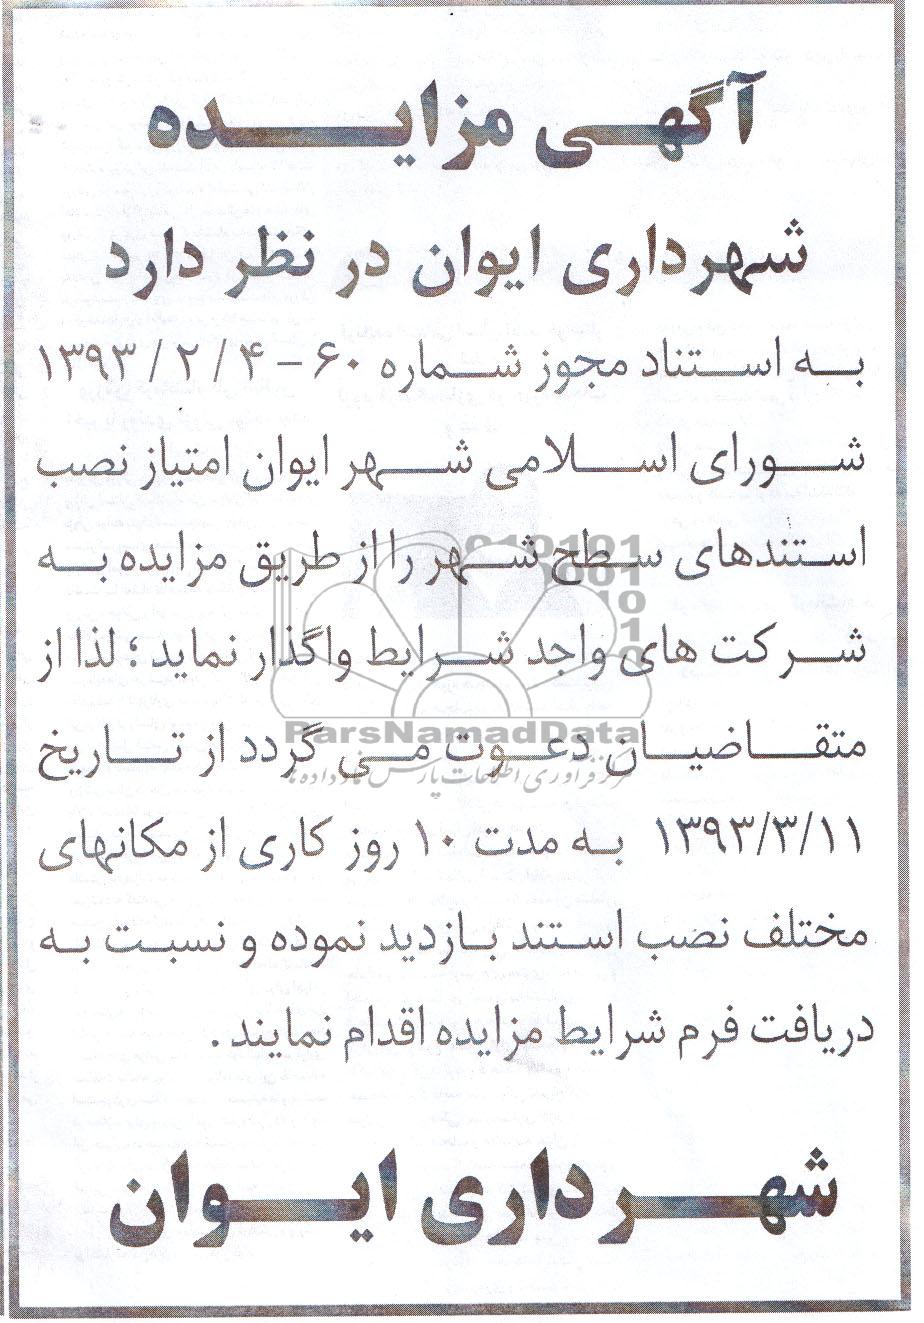 آگهی مزایده
شهرداری ایوان در نظر دارد
به استناد مجوز شماره ۶۰ - ۴ / ۲ / ۱۳۹۳
شورای اسلامی شهر ایوان امتیاز نصب
استندهای سطح شهر را از طریق مزایده به
شرکت های واجد شرایط واگذار نماید ؛ لذا از
متقاضیان دعوت می گردد از تاریخ
۱۳۹۳/۳/۱۱ به مدت ۱۰ روز کاری از مکانهای
مختلف نصب استند بازدید نموده و نسبت به
دریافت فرم شرایط مزایده اقدام نمایند .
شهرداری ایوان
010101
001
10
1
0
ParsNamadData
مرکز فرآوری اطلاعات پارس نماد داده ها